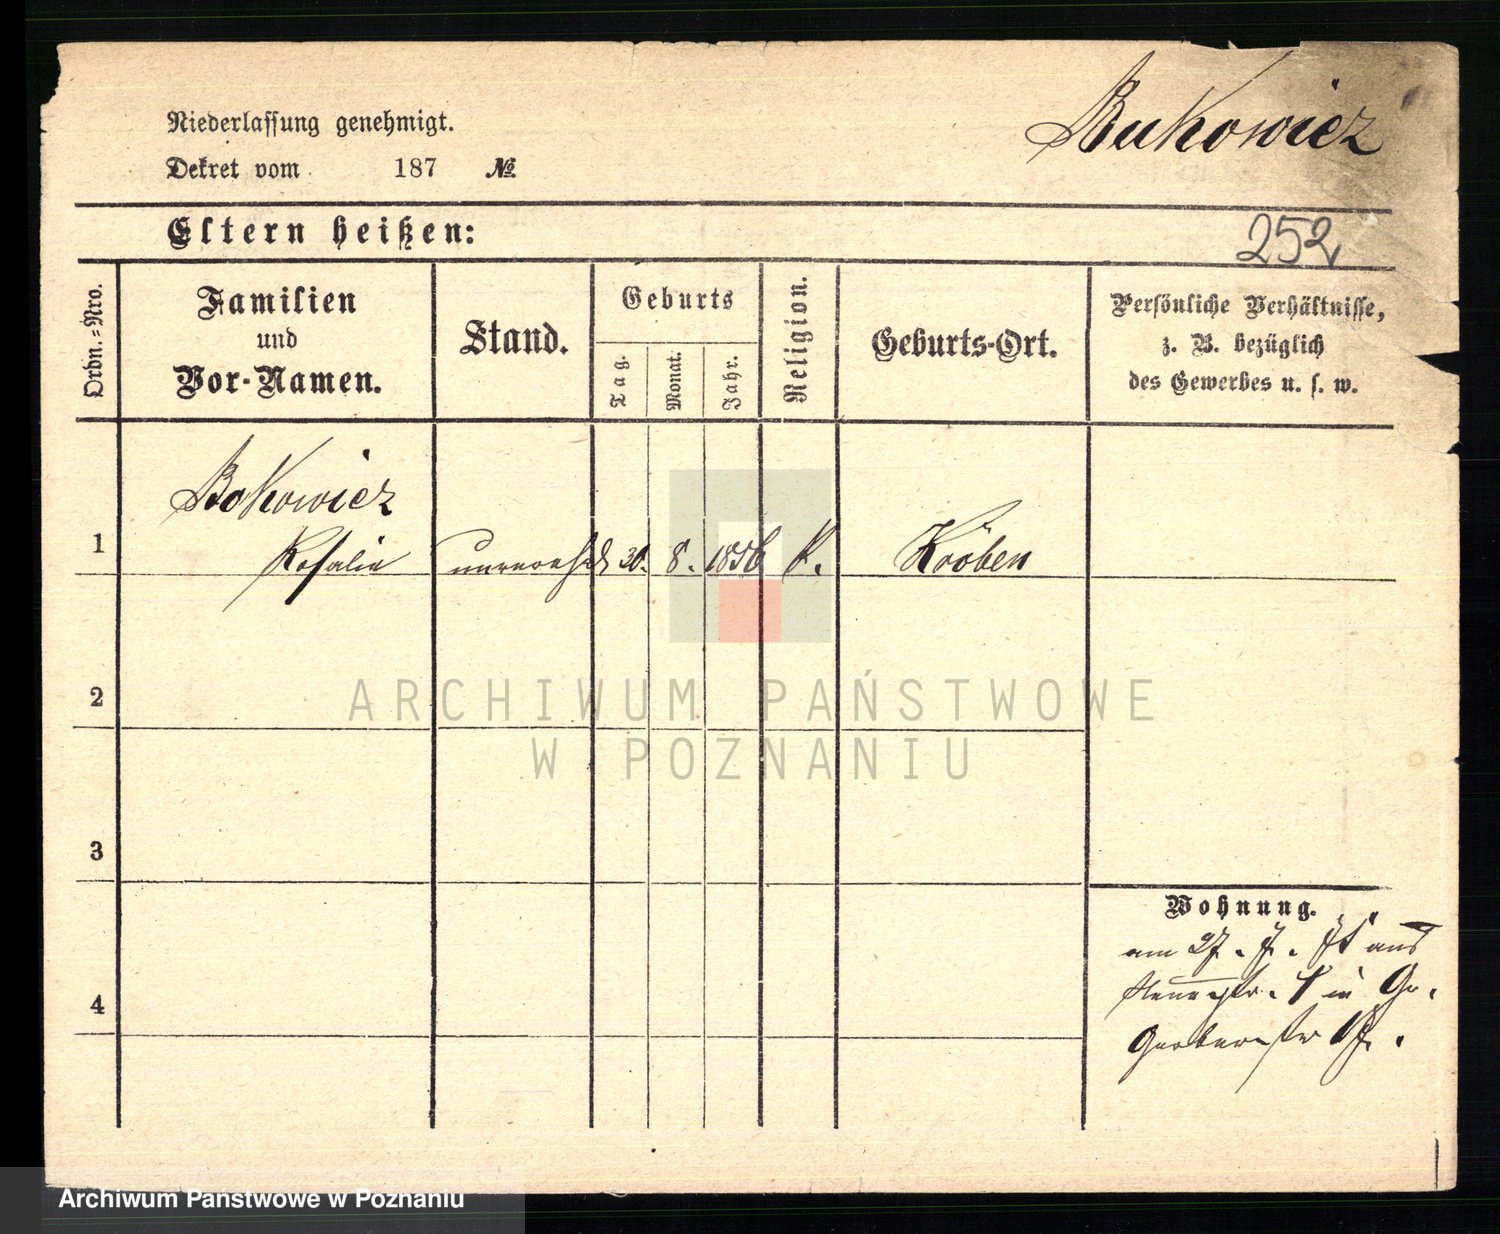 Bukowicz
Niederlassung genehmigt.
Dekret vom 187 №
Eltern heißen:
252
Ordn.-Nro.
Familien
und
Vor-Namen.
Stand.
Geburts
Tag.
Monat.
Jahr.
Religion.
Geburts-Ort.
Persönliche Verhältnisse,
z. B. bezüglich
des Gewerbes u. s. w.
1
Bokowicz
Rosalie
30. 8. 1856 K. Kröben
2
3
4
Wohnung.
am 27. 7. aus
in Gr.
Gerberstr
ARCHIWUM PAŃSTWOWE
W POZNANIU
Archiwum Państwowe w Poznaniu